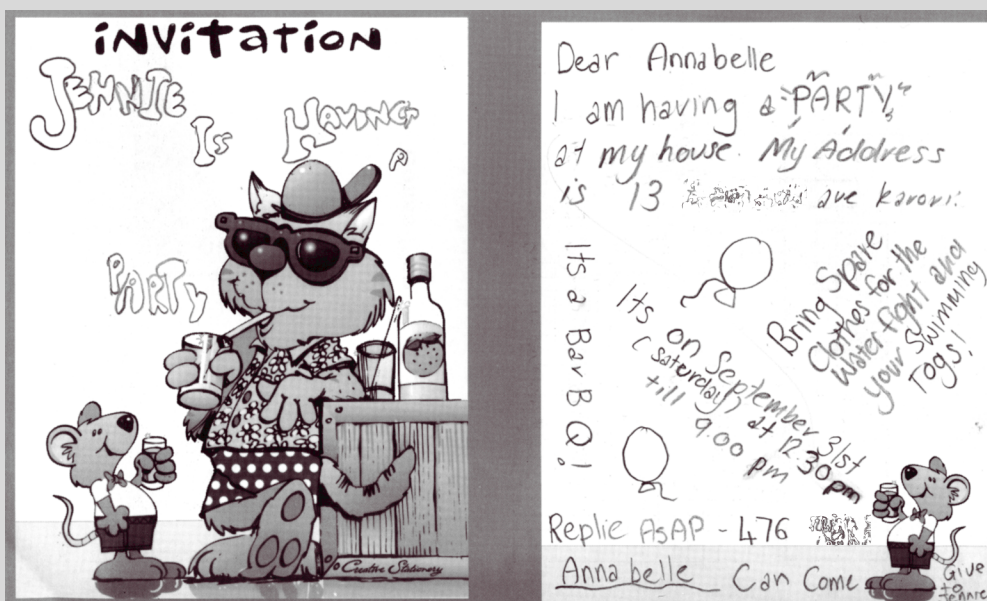 iNVitatioN
JENNIE
Is
HAVING
A
PARTY
Creative Stationery
Dear Annabelle
I am having a "PARTY"
at my house. My Address
is 13 ave karori.
Its a Bar B Q!
Its on September 31st
(Saturday) at 12 30 pm
till 9.00 pm
Bring Spare
Clothes for the
Water fight and
your Swimming
Togs!
Replie AsAP - 476
Annabelle Can Come
Give
to
Jennie